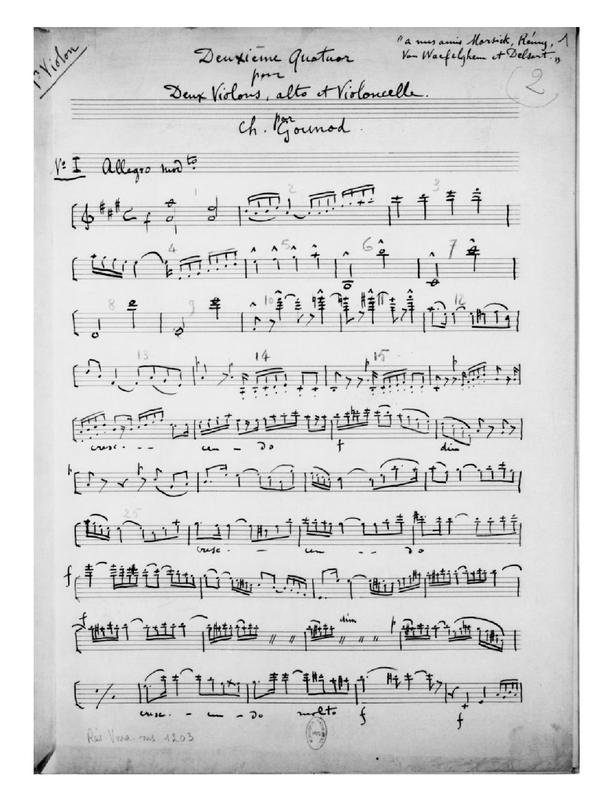 1er Violon
"a mes amis Marsick, Rémy, 1
Van Waefelghem et Delsart."
2
Deuxième Quatuor
pour
Deux Violons, alto et Violoncelle.
par
Ch. Gounod.
Vn I Allegro modto
f 1 2 3
4 5 6 7
8 9 10 12
13 14 p 15 p
cresc. - - - cen - do f dim
p
25
cresc. - - cen - - do
f
f dim p
cresc. - cen - do molto f f
Rés Vma. ms. 1203